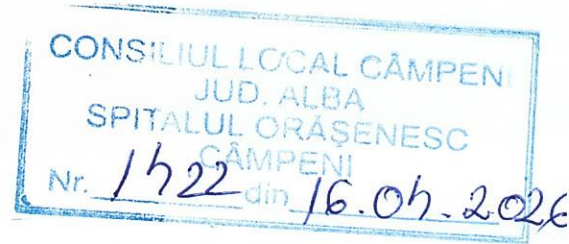 CONSILIUL LOCAL CÂMPENI
JUD. ALBA
SPITALUL ORĂŞENESC
CÂMPENI
Nr. 1422 din 16.04.2026